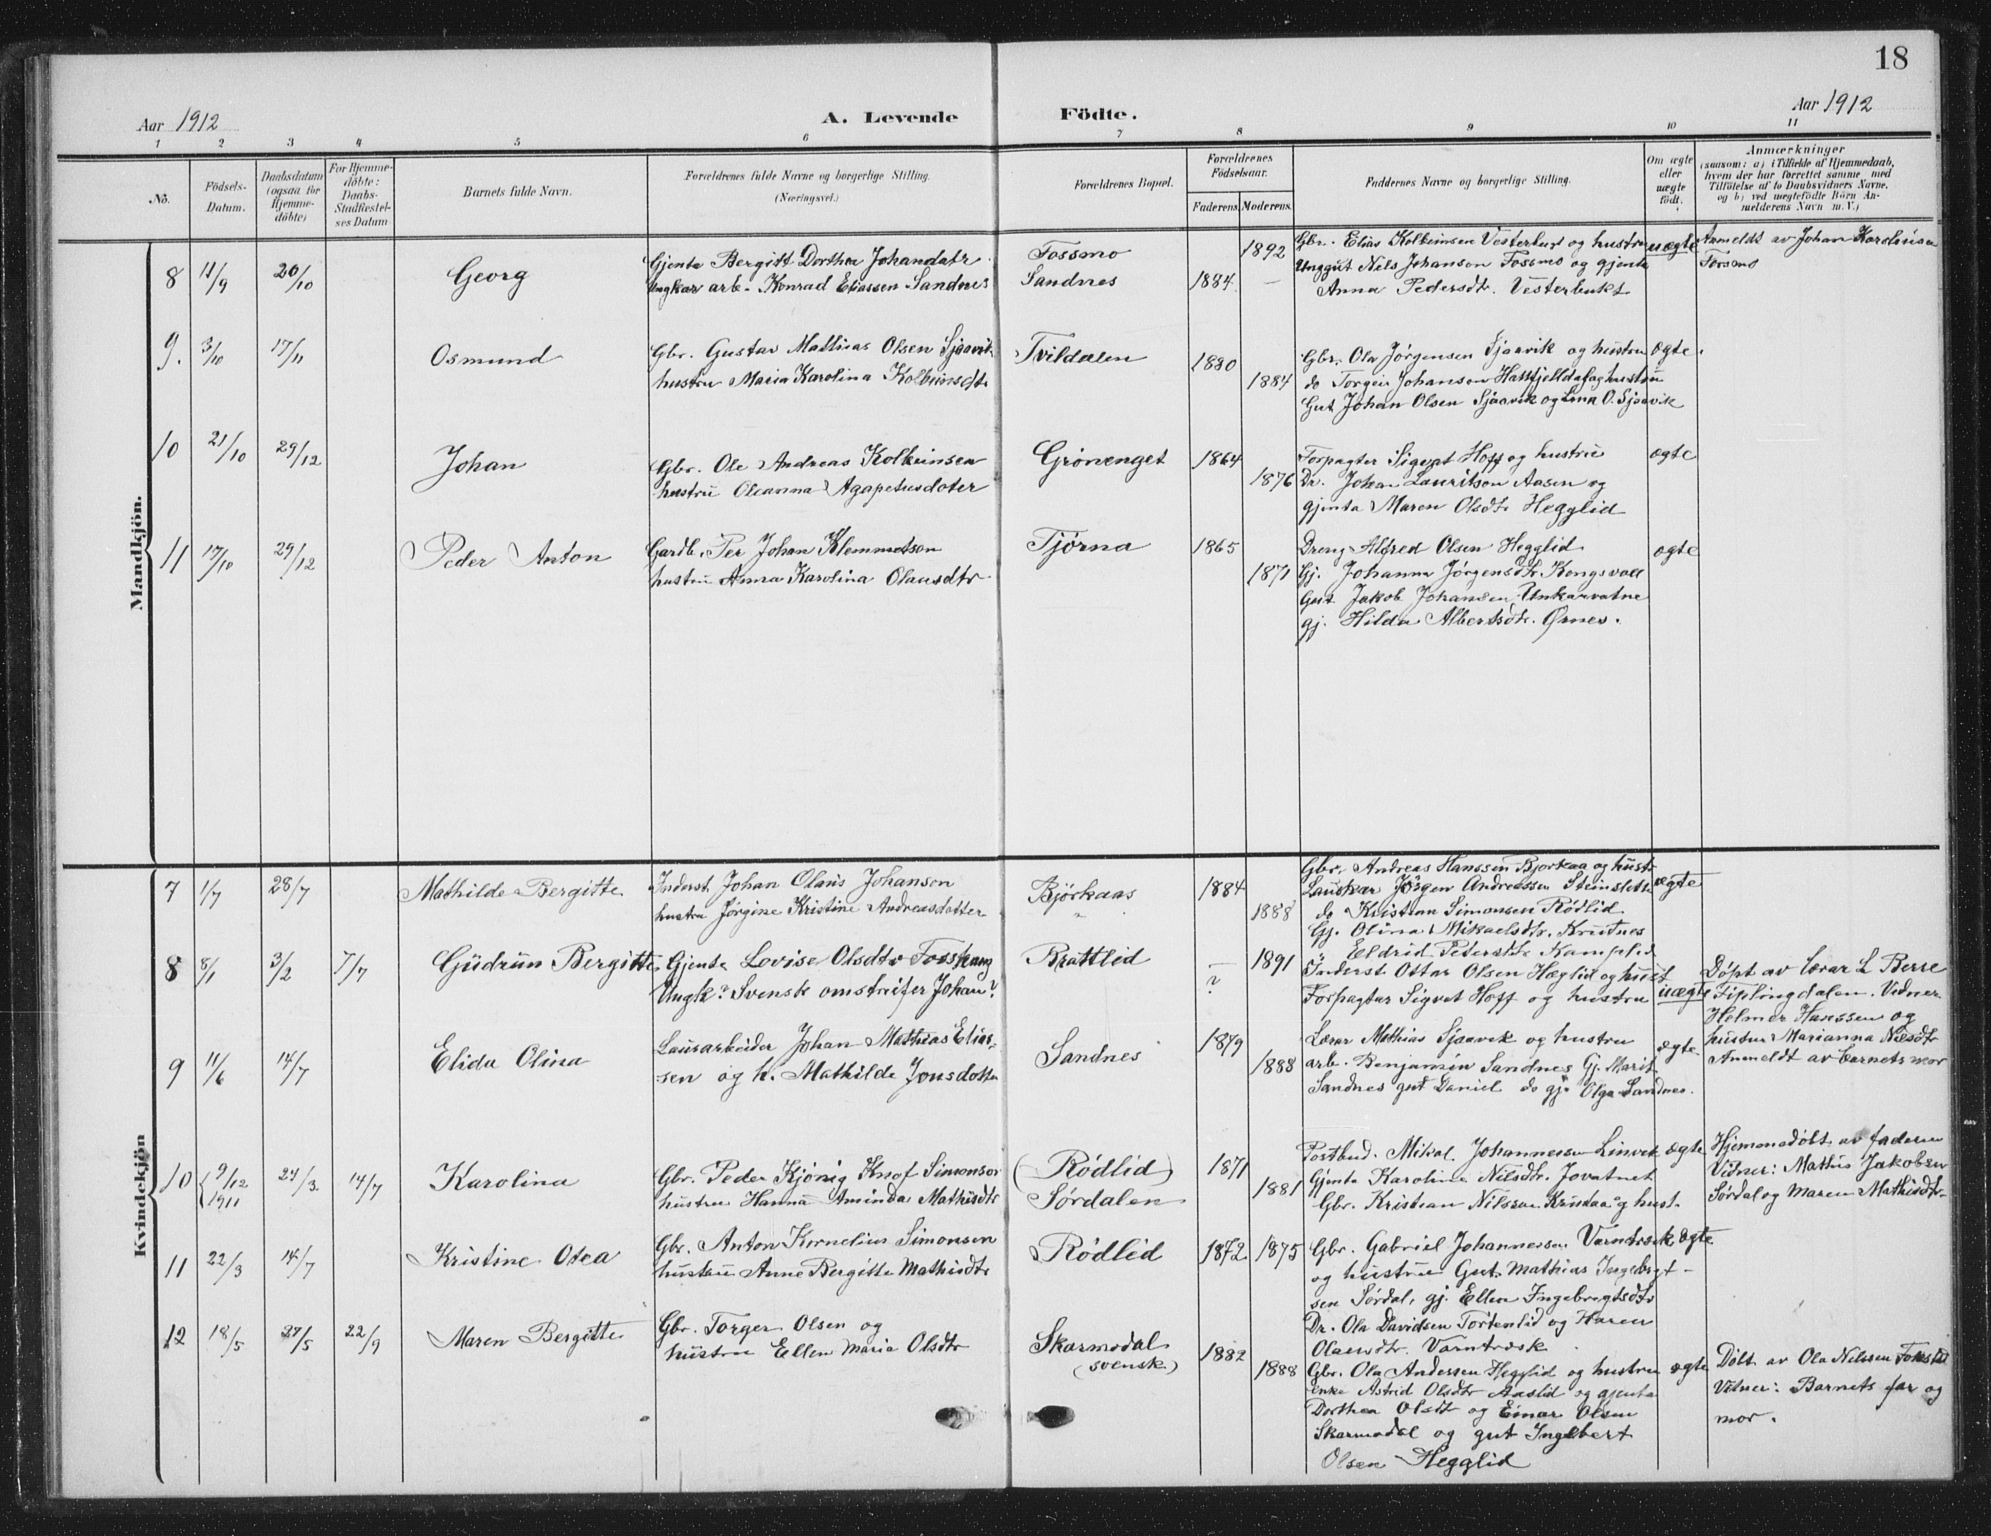 18
Aar 1912
A. Levende Födte.
Aar 1912
1 2 3 4 5 6 7 8 9 10 11
No.
Födsels-Datum.
Daabsdatum (ogsaa for Hjemme-döbte)
For Hjemme-döbte: Daabs-Stadfæstel-ses Datum
Barnets fulde Navn.
Forældrenes fulde Navne og borgerlige Stilling.
(Næringsvei.)
Forældrenes Bopæl.
Forældrenes Födselsaar.
Faderens. Moderens.
Faddernes Navne og borgerlige Stilling.
Om ægte eller uægte födt.
Anmærkninger
(saasom: a) i Tilfælde af Hjemmedaab,
hvem der har forrettet samme med
Tilföielse af to Daabsvidners Navne,
og b) ved uægtefödte Börn An-
melderens Navn m. V.)
Mandkjön.
8 11/9 20/10 Georg
Gjenta Bergitt Dorthea Johandatr
Ungkar arb. Konrad Eliassen Sandnes
Fossmo
Sandnes
1884 1892
Gbr. Elias Kolbeinsen Vesterbugt og hustru
Unggut Nels Johanson Fossmo og gjenta
Anna Pedersdtr. Vesterbukt
uægte
Anmeldt av Johan Karolinsen
Fossmo
9. 3/10 17/11 Osmund
Gbr. Gustav Mathias Olsen Sjaavik
hustru Maria Karolina Kolbeinsdtr
Tvildalen
1880 1884
Gbr. Ola Jørgensen Sjaavik og hustru
do Torgeir Johanson Hatfjelldal og hustru
Gut Johan Olsen Sjaavik og Lina O. Sjaavik
ægte.
10 21/10 29/12 Johan
Gbr. Ole Andreas Kolbeinsen
hustru Oleanna Agapetusdoter
Grønenget
1864 1876
Forpagter Sigvat Hoff og hustru
Dr. Johan Lauritson Aasen og
gjenta Maren Olsdtr Hegglid
ægte
11 17/10 29/12 Peder Anton
Gardb. Per Johan Klemmetson
hustru Anna Karolina Olausdtr
Tjørna
1865 1871
Dreng Alfred Olsen Hegglid
Gj. Johanna Jørgensdtr. Kongsvoll
Gut Jakob Johansen Unkarvatne
gj. Hilda Albertsdtr. Ørnes.
ægte
Kvindekjön
7 1/7 28/7 Mathilde Bergitte
Inderst Johan Olaus Johanson
hustru Jørgine Kristine Andreasdatter
Bjørkaas
1884 1888
Gbr. Andreas Hanssen Bjorkaa og hustr
Lauskar Jørgen Andreassen Steinslett
do Kristian Simonsen Rødlid
Gj. Olina Mikaelsdtr. Krutnes
" Eldrid Pedersdtr Kamplid
ægte
8 8/1 3/2 7/7 Gudrun Bergitte
Gjenta Lovise Olsdtr Fosskang
Ungk? Svensk omstreifer Johan?
Brattlid
— ? 1891
Inderst Ottar Olsen Hæglid og hust
Forpagter Sigvat Hoff og hustru
uægte
Døpt av lærar L Berre
Fiplingdalen. Vidner
Helmer Hanssen og
hustru Marianna Nilsdtr
Anmeldt av barnets mor
9 11/6 14/7 Elida Olina
Lausarbeider Johan Mathias Elias-
sen og h. Mathilde Jonsdotter
Sandnes
1879 1888
Lærar Mathias Sjaavik og hustru
arb. Benjamin Sandnes Gj. Marit
Sandnes gut Daniel do gj. Olga Sandnes.
ægte
10 9/12 1911 24/3 14/7 Karolina
Gbr. Peder Kjønig Knof Simonson
hustru Hanna Aminda Mathisdtr
(Rødlid)
Sørdalen
1871 1881
Postbud. Mikal Johannesen Linvek
Gjenta Karoline Nilsdtr. Jovatnet
Gbr. Kristian Nilsson Krutaa og hust.
ægte
Hjemmedøbt av faderen
Vidner: Mathis Jakobsen
Sørdal og Maren Mathisdtr
11 22/3 14/7 Kristine Otea
Gbr. Anton Kornelius Simonsen
hustru Anne Bergitte Mathisdtr
Rødlid
1872 1875
Gbr. Gabriel Johannessen Varntræsk
og hustru Gut Mathias Ingebrigt-
sen Sørdal, gj. Ellen Ingebrigtsdtr
Dr. Ola Davidsen Tortenlid og Haren
Olausdtr. Varntræsk
ægte
12 18/5 27/5 22/9 Maren Bergitte
Gbr. Torger Olsen og
hustru Ellen Maria Olsdtr
Skarmodal
(svensk)
1882 1888
Gbr. Ola Andersen Hegglid og hustru
enke Astrid Olsdtr Aaslid og gjenta
Dorthea Olsdtr og Einar Olsen
Skarmodal og gut Ingebert
Olsen Hegglid
ægte
Døbt av Ola Nilssen
Vitner: Barnets far og
mor.